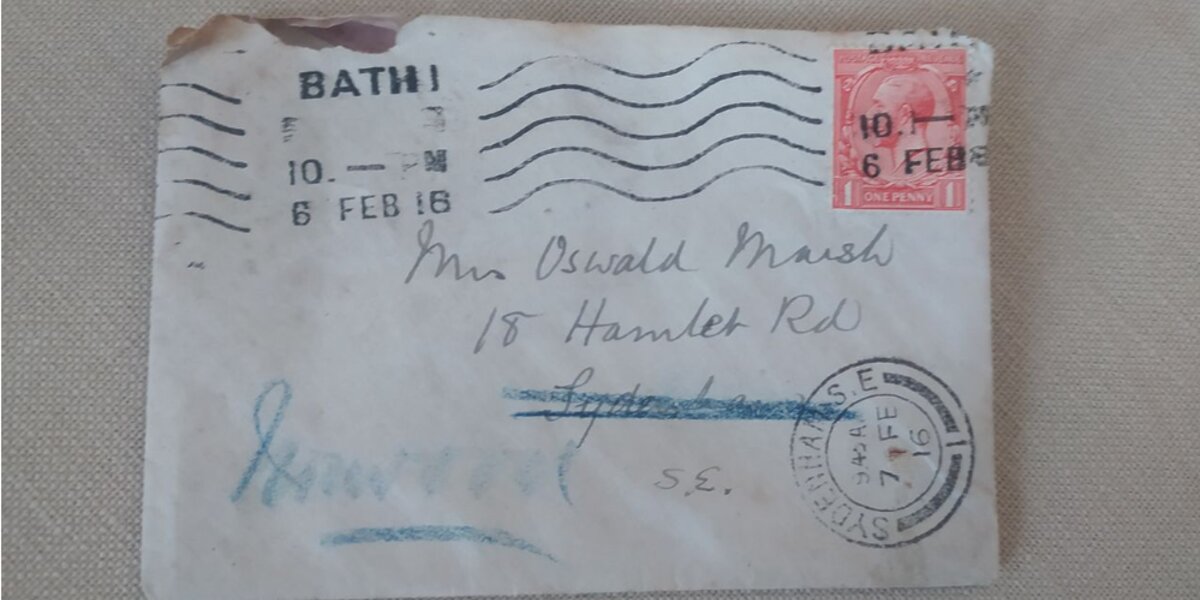 BATH 1
10. — AM
6 FEB 16
10.1 —
6 FEB
1 ONE PENNY 1
Mrs Oswald Marsh
18 Hamlet Rd
Sydenham
Norwood
S.E.
SYDENHAM S.E
945 A
7 FE
16
1